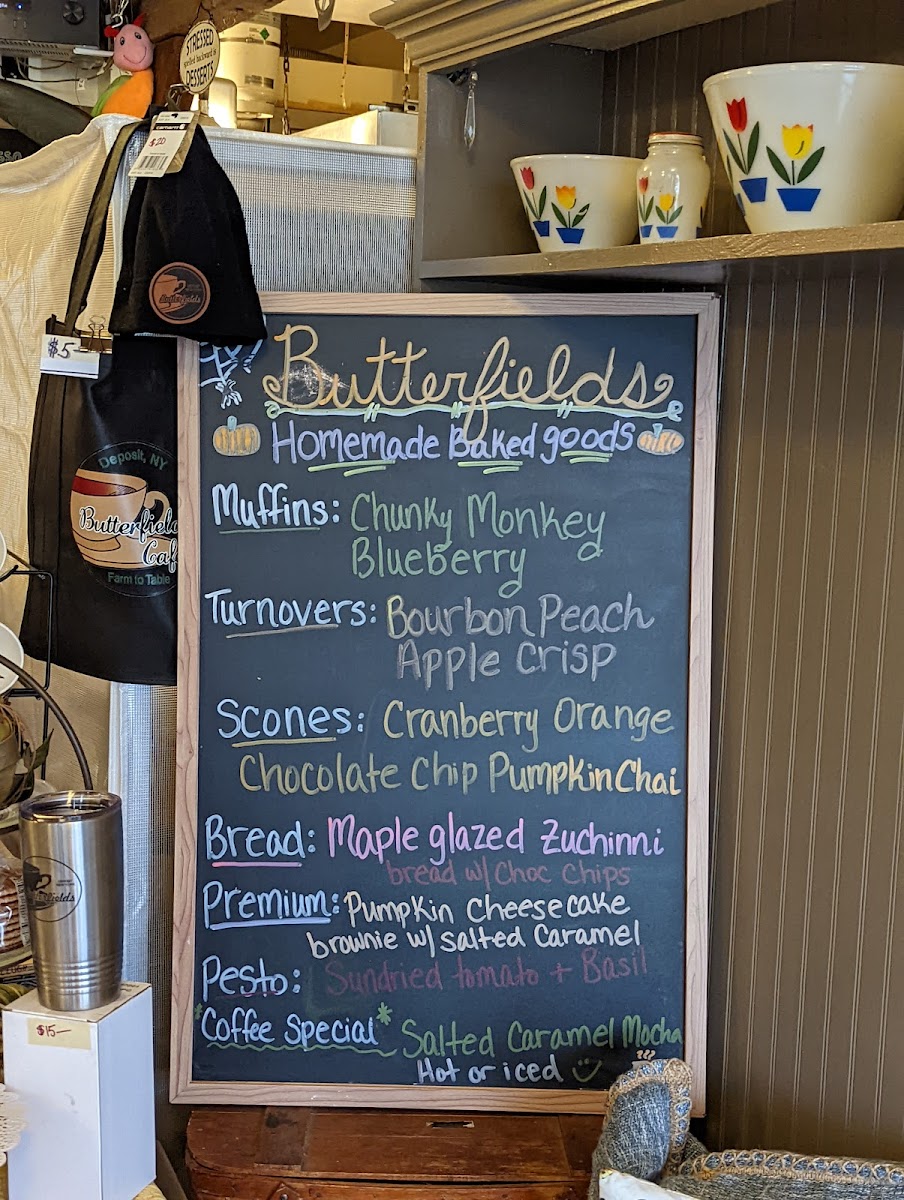 STRESSED
spelled backward is
DESSERTS
carhartt
$20
Butterfields
$5
Deposit, NY
Butterfield
Caf
Farm to Table
Butterfields
Homemade Baked goods
Muffins: Chunky Monkey
Blueberry
Turnovers: Bourbon Peach
Apple Crisp
Scones: Cranberry Orange
Chocolate Chip Pumpkin Chai
Bread: Maple glazed Zuchinni
bread w/ Choc Chips
Premium: Pumpkin Cheesecake
brownie w/ Salted Caramel
Pesto: Sundried tomato + Basil
*Coffee Special* Salted Caramel Mocha
Hot or iced
$15-